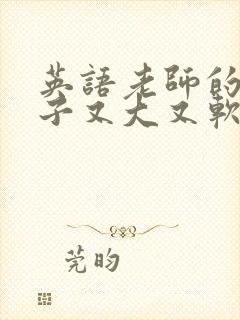 英語老師的
子又大又軟
莞昀